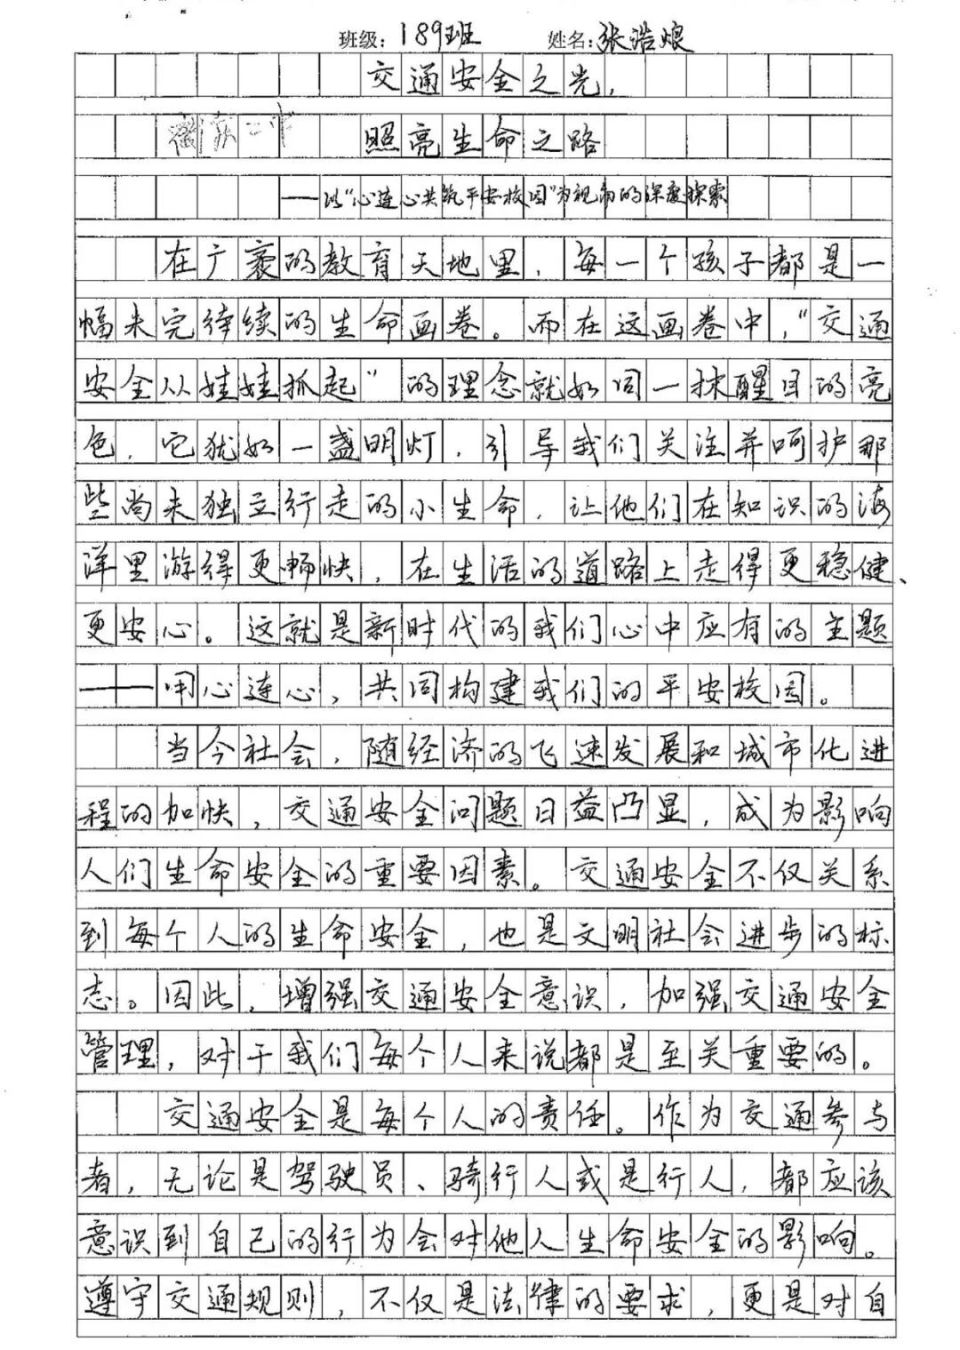 班级：189班 姓名：张浩烺
交通安全之光，
二中 照亮生命之路
——以“心连心共筑平安校园”为视角的深度探索
在广袤的教育天地里，每一个孩子都是一
幅未完待续的生命画卷。而在这画卷中，“交通
安全从娃娃抓起”的理念就如同一抹醒目的亮
色，它犹如一盏明灯，引导我们关注并呵护那
些尚未独立行走的小生命，让他们在知识的海
洋里游得更畅快，在生活的道路上走得更稳健、
更安心。这就是新时代的我们心中应有的主题
——用心连心，共同构建我们的平安校园。
当今社会，随经济的飞速发展和城市化进
程的加快，交通安全问题日益凸显，成为影响
人们生命安全的重要因素。交通安全不仅关系
到每个人的生命安全，也是文明社会进步的标
志。因此，增强交通安全意识，加强交通安全
管理，对于我们每个人来说都是至关重要的。
交通安全是每个人的责任。作为交通参与
者，无论是驾驶员、骑行人或是行人，都应该
意识到自己的行为会对他人生命安全的影响。
遵守交通规则，不仅是法律的要求，更是对自